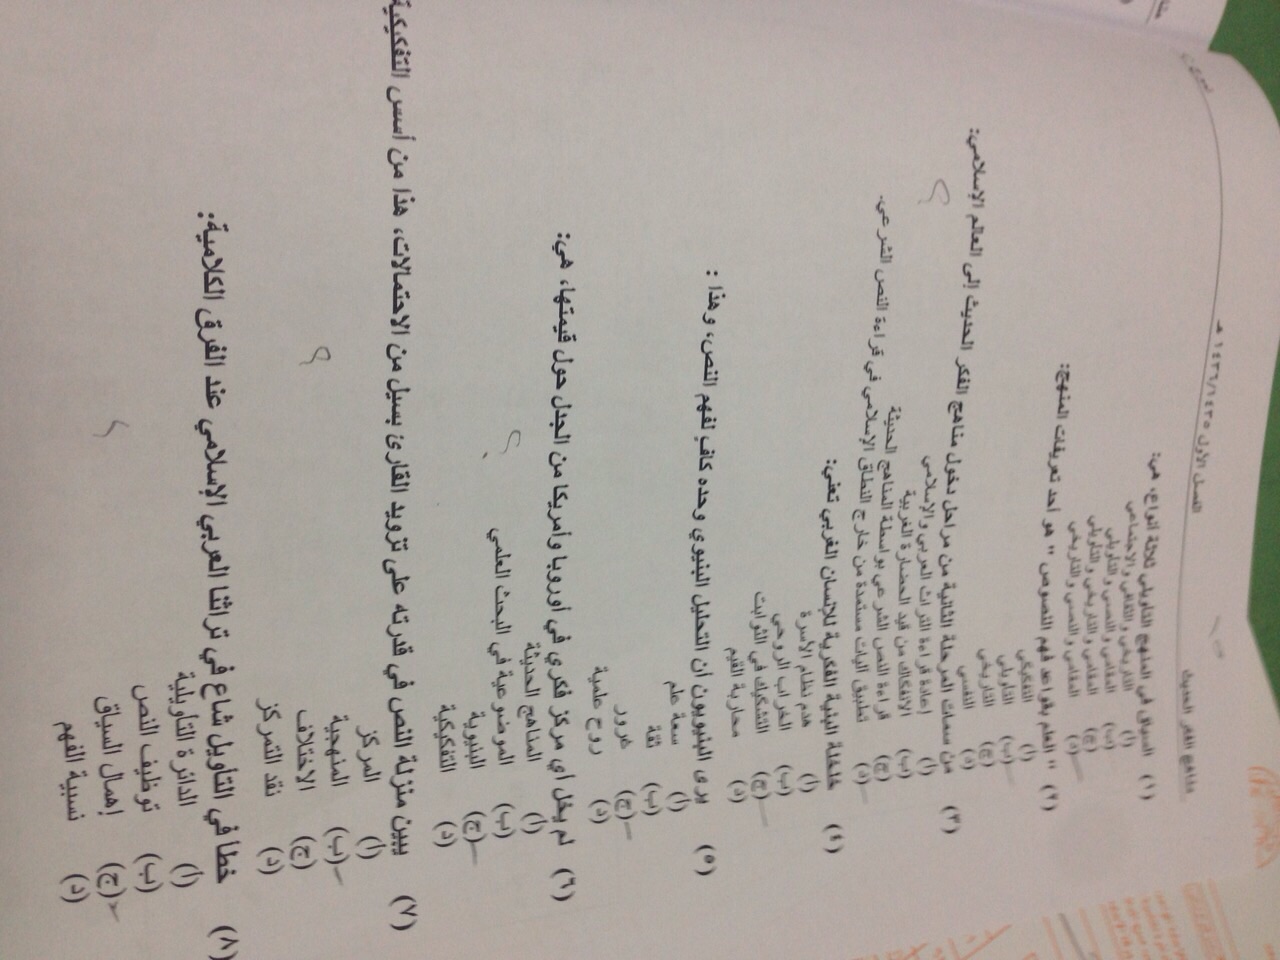 مناهج الفكر الحديث
الفصل الأول ١٤٣٦/١٤٣٥ هـ
(١) السياق في المنهج التأويلي ثلاثة أنواع، هي:
(أ) التاريخي والثقافي والاجتماعي
(ب) المقامي والنصي والتأويلي
(ج) المقامي والتاريخي والتأويلي
(د) المقامي والنصي والتاريخي
(٢) " العلم بقواعد فهم النصوص " هو أحد تعريفات المنهج:
(أ) التفكيكي
(ب) التأويلي
(ج) التاريخي
(د) النفسي
(٣) من سمات المرحلة الثانية من مراحل دخول مناهج الفكر الحديث إلى العالم الإسلامي:
(أ) إعادة قراءة التراث العربي والإسلامي
(ب) الانفكاك من قيد الحضارة الغربية
(ج) قراءة النص الشرعي بواسطة المناهج الحديثة
(د) تطبيق آليات مستمدة من خارج النطاق الإسلامي في قراءة النص الشرعي.
(٤) خلخلة البنية الفكرية للإنسان الغربي تعني:
(أ) هدم نظام الأسرة
(ب) الخراب الروحي
(ج) التشكيك في الثوابت
(د) محاربة القيم
(٥) يرى البنيويون أن التحليل البنيوي وحده كافٍ لفهم النص، وهذا :
(أ) سعة علم
(ب) ثقة
(ج) غرور
(د) روح علمية
(٦) لم يخل أي مركز فكري في أوروبا وأمريكا من الجدل حول قيمتها، هي:
(أ) المناهج الحديثة
(ب) الموضوعية في البحث العلمي
(ج) البنيوية
(د) التفكيكية
(٧) يبين منزلة النص في قدرته على تزويد القارئ بسيل من الاحتمالات، هذا من أسس التفكيكية
(أ) المركز
(ب) المنهجية
(ج) الاختلاف
(د) نقد التمركز
(٨) خطأ في التأويل شاع في تراثنا العربي الإسلامي عند الفرق الكلامية:
(أ) الدائرة التأويلية
(ب) توظيف النص
(ج) إهمال السياق
(د) نسبية الفهم